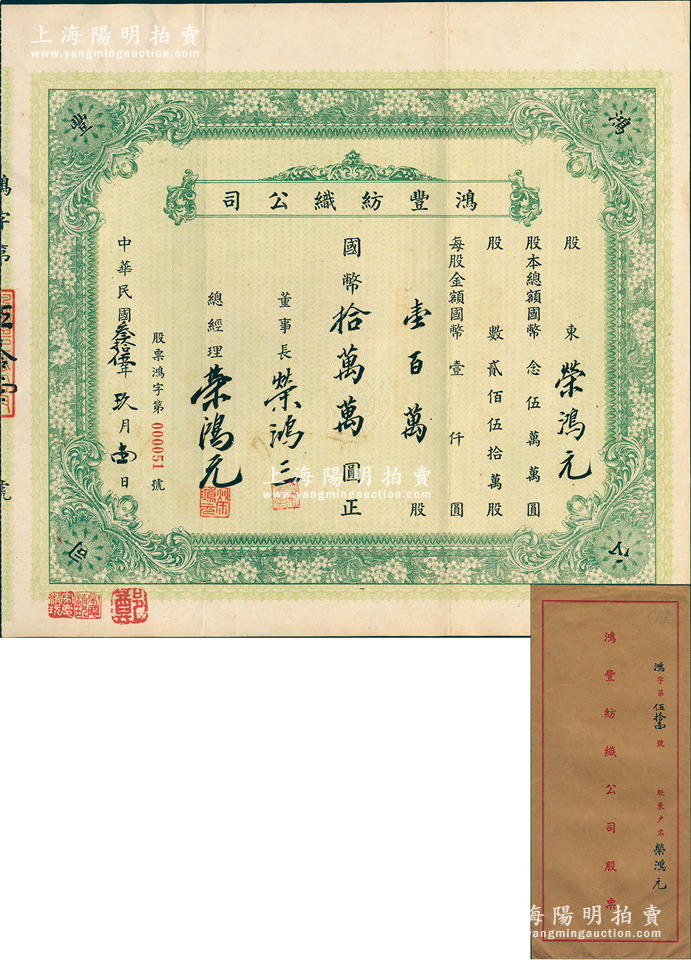 上海陽明拍賣
www.yangmingauction.com
鴻
豐
公
司
鴻豐紡織公司
股東 榮鴻元
股本總額國幣念伍萬萬圓
股數貳佰伍拾萬股
每股金額國幣壹仟圓
壹百萬股
國幣拾萬萬圓正
董事長 榮鴻三
總經理 榮鴻元
股票鴻字第000051號
中華民國叁拾伍年玖月壹日
鴻字第
號
上海陽明拍賣
www.yangmingauction.com
鴻字第伍拾壹號 股東户名 榮鴻元
鴻豐紡織公司股票
上海陽明拍賣
www.yangmingauction.com